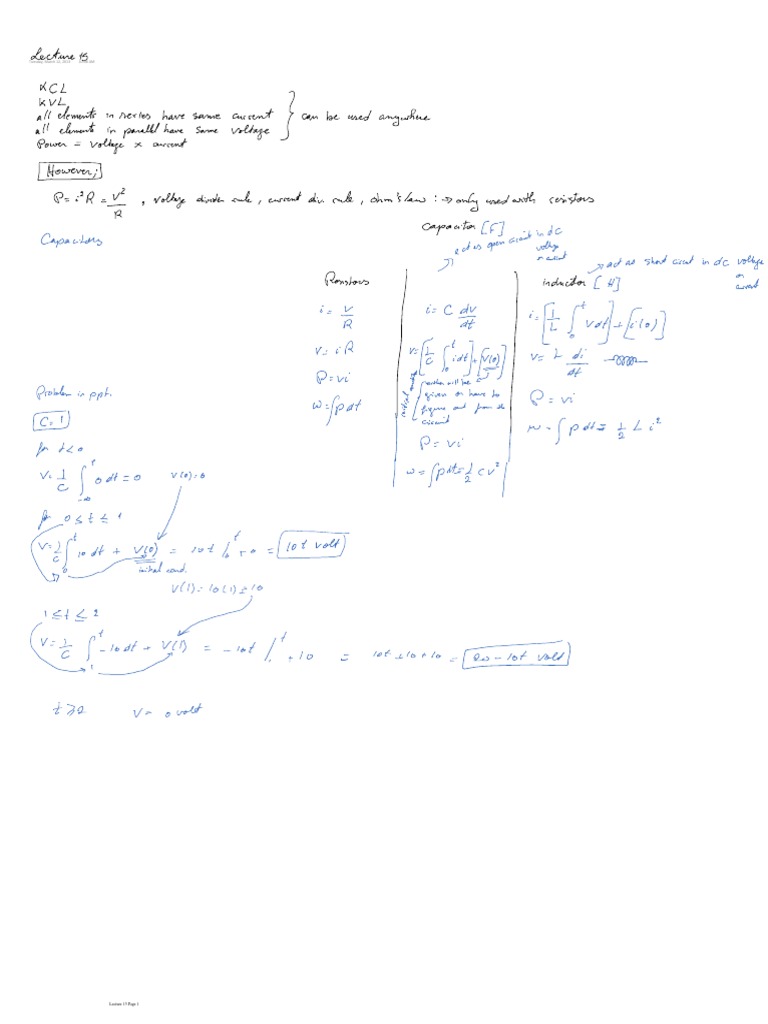 Lecture 15
KCL
KVL
all elements in series have same current
all elements in parallel have same voltage
Power = voltage x current
} can be used anywhere
However;
P = i²R = V²/R , voltage divider rule, current div. rule, ohm's law : → only used with resistors
Capacitors
Capacitor [F]
act as open circuit in dc voltage or current
Resistors
i = V/R
V = iR
P = vi
w = ∫pdt
i = C dv/dt
v = [1/C ∫₀ᵗ idt] + [V(0)]
initial
either will be given or have to figure out from the circuit
P = vi
w = ∫pdt = 1/2 cv²
act as short circuit in dc voltage or current
inductor [H]
i = [1/L ∫₀ᵗ vdt] + [i(0)]
v = L di/dt
P = vi
w = ∫pdt = 1/2 L i²
Problem in ppt.
C = 1
for t<0
V = 1/C ∫₋∞ᵗ 0dt = 0 V(0)=0
for 0 ≤ t ≤ 1
V = 1/C ∫₀ᵗ 10dt + V(0) = 10t |₀ᵗ + 0 = 10t volt
initial cond.
V(1) = 10(1) = 10
1 ≤ t ≤ 2
V = 1/C ∫₁ᵗ -10dt + V(1) = -10t |₁ᵗ + 10 = 10t + 10 + 10 = 20 - 10t volt
t ≥ 2 V = 0 volt
Lecture 15 Page 1